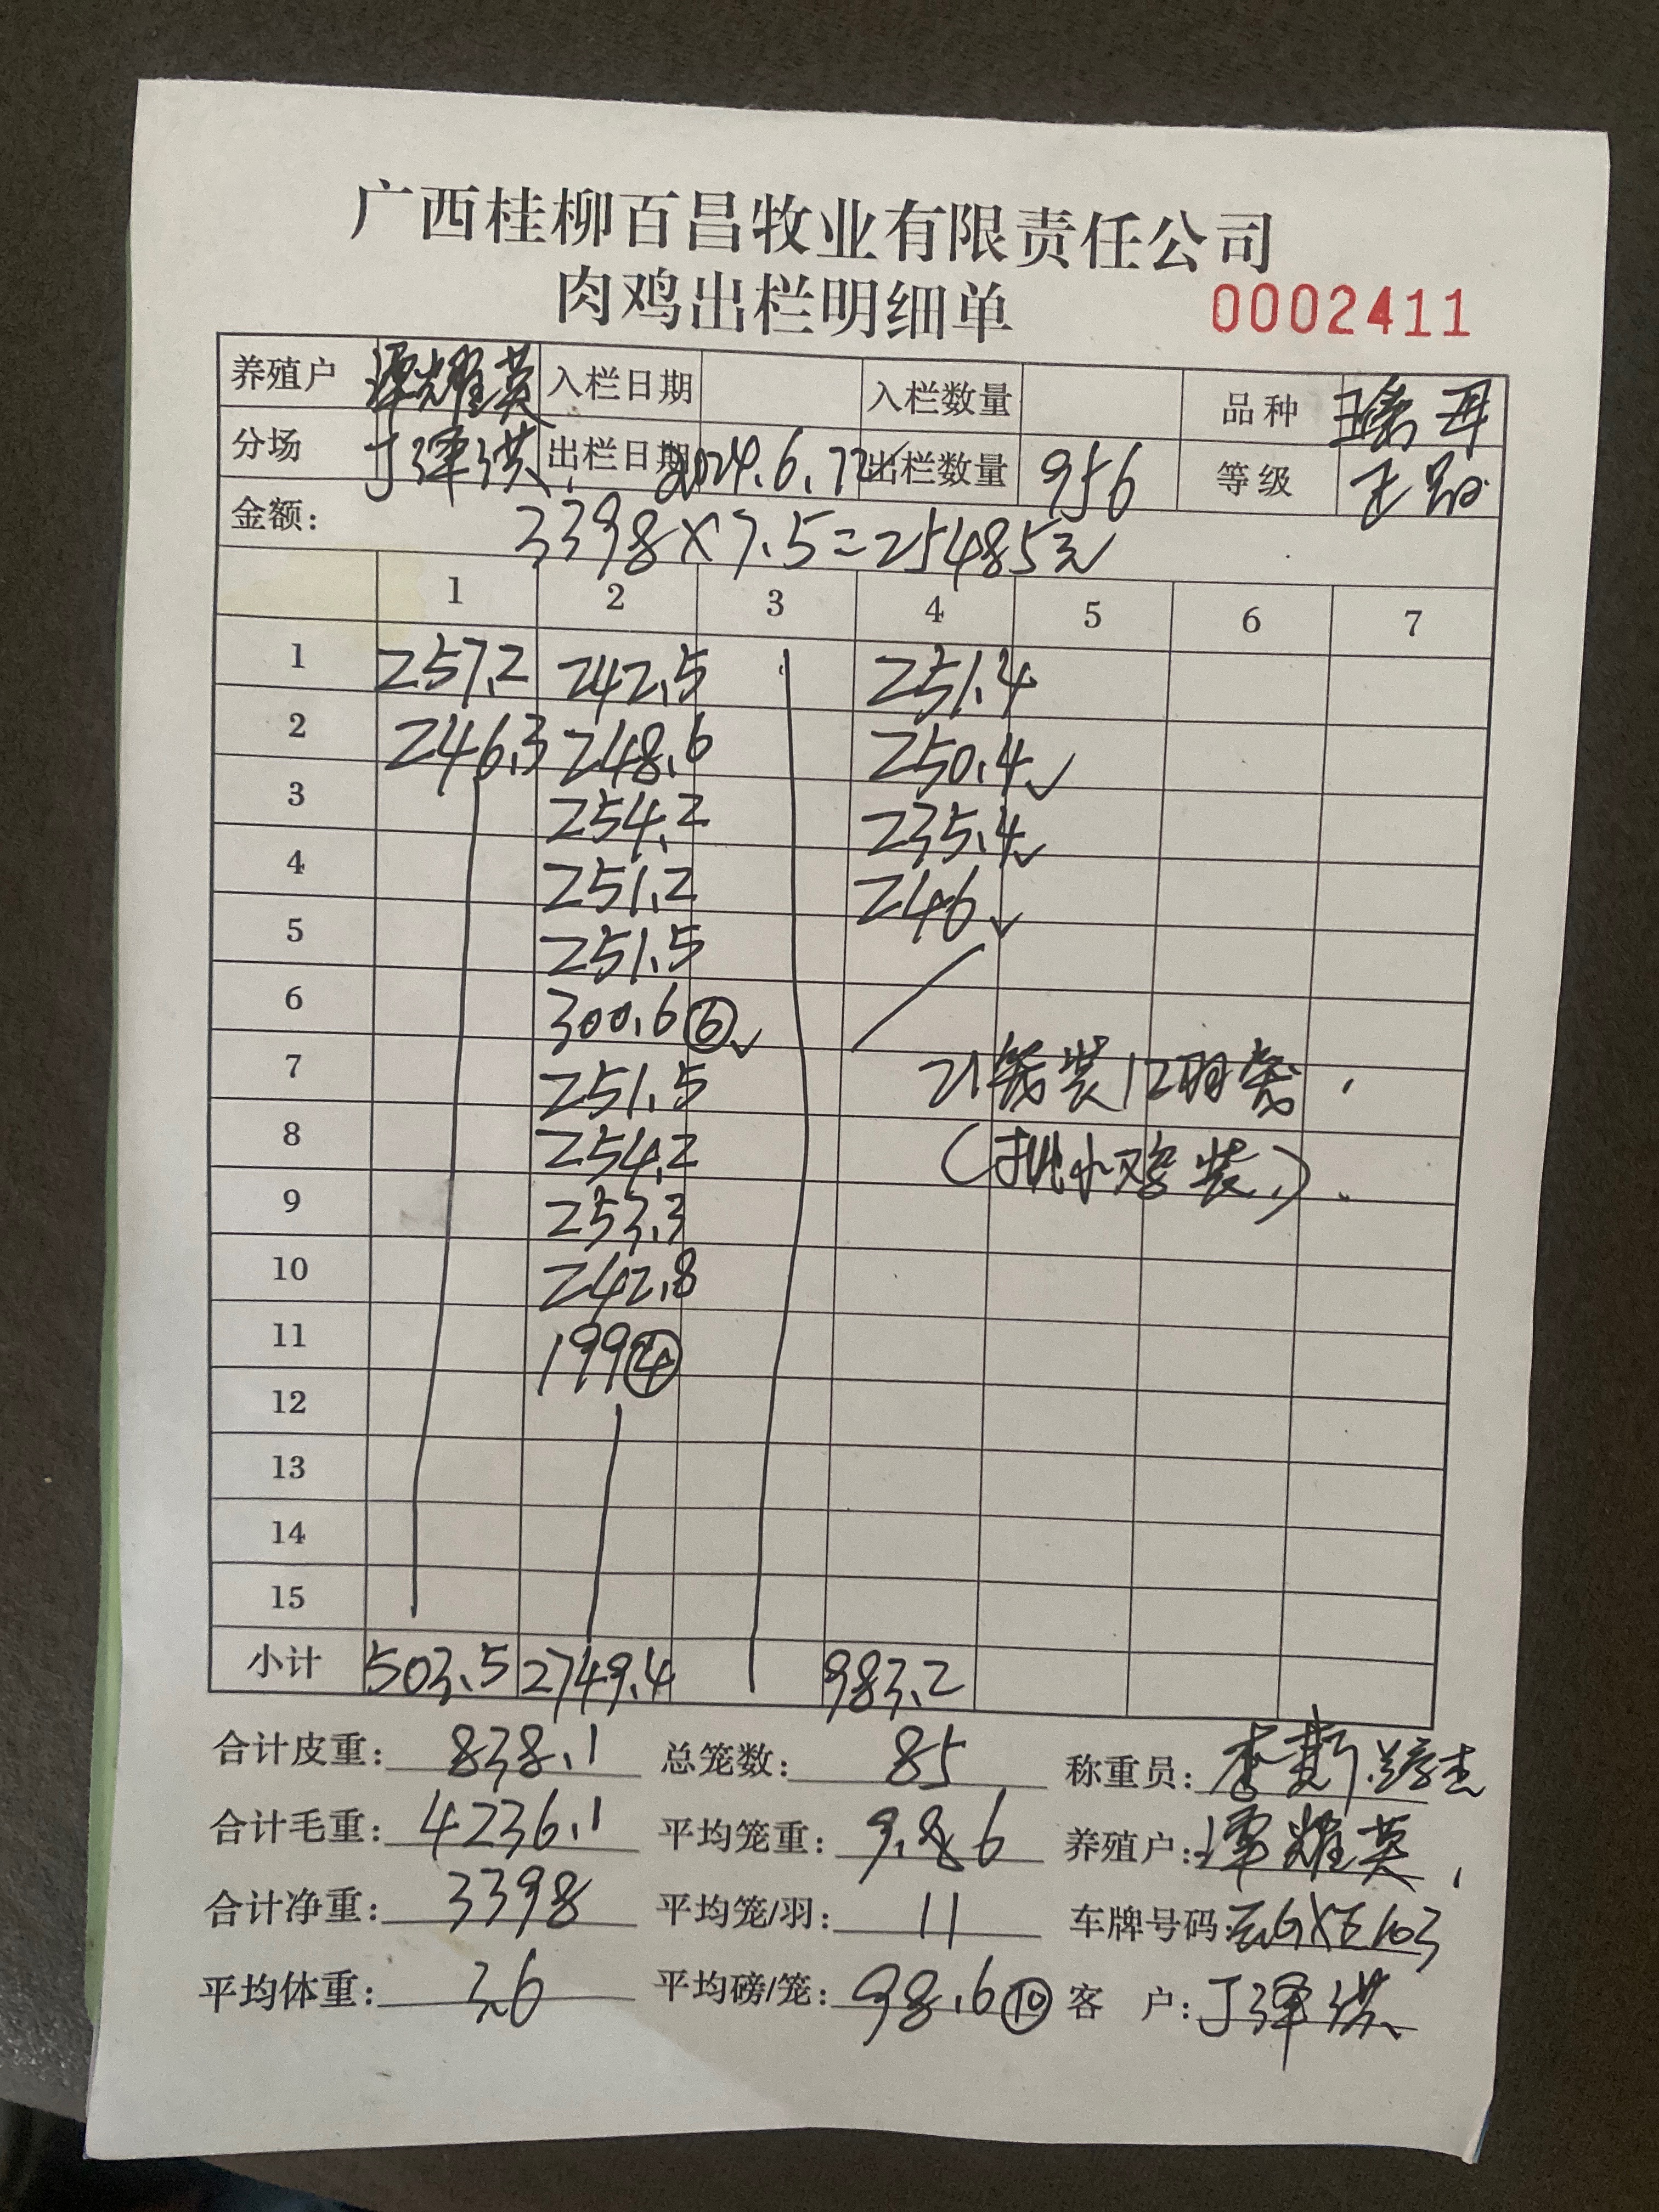 广西桂柳百昌牧业有限责任公司
肉鸡出栏明细单 0002411
养殖户 谭耀英 入栏日期 入栏数量 品种
分场 丁泽洪 出栏日期 2024.6.12 出栏数量 956 等级
金额: 3398×7.5=25485元
1 2 3 4 5 6 7
1 257.2 242.5 251.4
2 246.3 248.6 250.4✓
3 254.2 235.4✓
4 251.2 246✓
5 251.5
6 300.6⑥✓
7 251.5 21笼装12羽笼,
8 254.2 (挑小鸡装,)
9 253.3
10 242.8
11 199④
12
13
14
15
小计 503.5 2749.4 983.2
合计皮重: 838.1 总笼数: 85 称重员:
合计毛重: 4236.1 平均笼重: 9.86 养殖户: 谭耀英
合计净重: 3398 平均笼/羽: 11 车牌号码:
平均体重: 3.6 平均磅/笼: 98.6⑩ 客 户: 丁泽洪